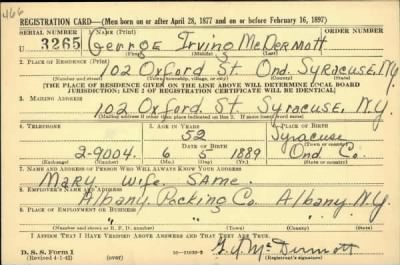 466
REGISTRATION CARD—(Men born on or after April 28, 1877 and on or before February 16, 1897)
SERIAL NUMBER 1. NAME (Print)
U 3265 George Irving McDermott
(First) (Middle) (Last)
2. PLACE OF RESIDENCE (Print)
102 Oxford St. Ond. Syracuse, N.Y.
(Number and street) (Town, township, village, or city) (County) (State)
[THE PLACE OF RESIDENCE GIVEN ON THE LINE ABOVE WILL DETERMINE LOCAL BOARD
JURISDICTION; LINE 2 OF REGISTRATION CERTIFICATE WILL BE IDENTICAL]
3. MAILING ADDRESS
102 Oxford St. Syracuse. N.Y.
[Mailing address if other than place indicated on line 2. If same insert word same]
4. TELEPHONE 5. AGE IN YEARS 6. PLACE OF BIRTH
52 Syracuse
DATE OF BIRTH (Town or county)
2-9004. 6 5 1889 Ond. Co.
(Exchange) (Number) (Mo.) (Day) (Yr.) (State or country)
7. NAME AND ADDRESS OF PERSON WHO WILL ALWAYS KNOW YOUR ADDRESS
Mary wife. SAME.
8. EMPLOYER'S NAME AND ADDRESS
Albany Packing Co Albany N.Y.
9. PLACE OF EMPLOYMENT OR BUSINESS
(Number and street or R. F. D. number) (Town) (County) (State)
I AFFIRM THAT I HAVE VERIFIED ABOVE ANSWERS AND THAT THEY ARE TRUE.
D. S. S. Form 1
(Revised 4-1-42) G. I. McDermott
(Registrant's signature)